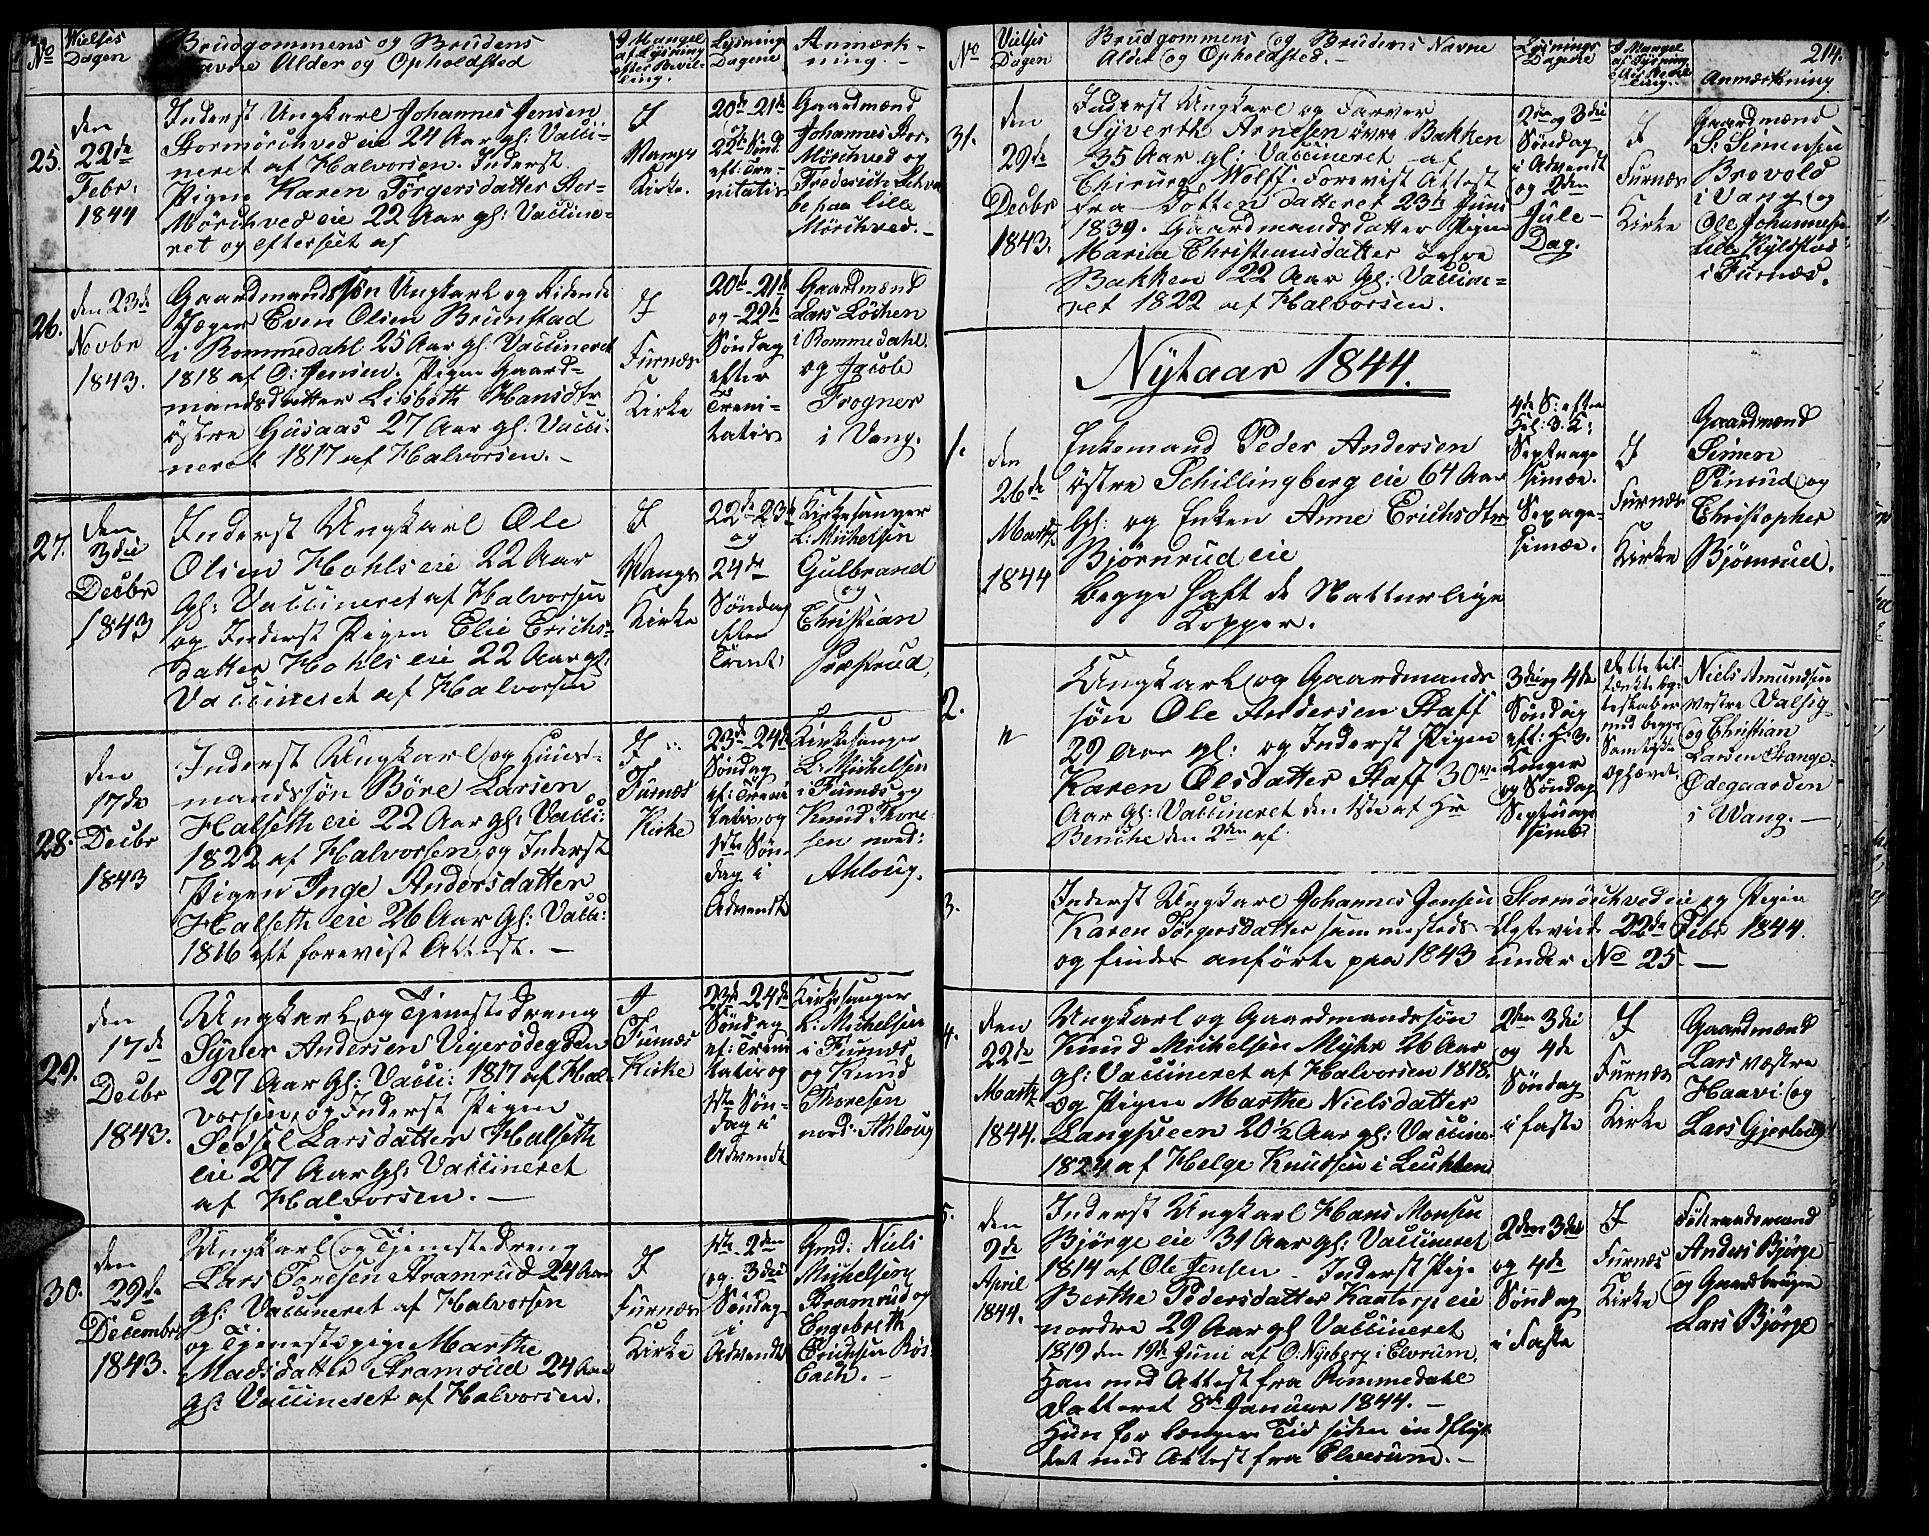 No
Vielses
Dagen
Brudgommens og Brudens
Navne Alder og Opholdsted
I Mangel
af Lysning
efter Bevil-
ling.
Lysning
Dagene
Anmærk-
ning.
25.
den
22de
Febr:
1844
Inderst Ungkarl Johannes Jensen
Stormörchved eie 24 Aar gl: Vacci-
neret af Halvorsen. Inderst
Pigen Karen Törgersdatter Stor-
Mörchved eie 22 Aar gl: Vaccine-
ret og efterseet af
I
Vangs
Kirke.
20de 21de
og
22de Sönd.
eft: Tre-
nitatis
Gaardmænd
Johannes Stor-
Mörchved og
Frederich
be paa lille
Mörchved. -
26.
den 23de
Novbr
1843.
Gaardmandssøn Ungkarl og Ridende
Jæger Even Olsen Brunstad
i Rommedahl 25 Aar gl: Vaccineret
1818 af O: Jensen. Pigen Gaard-
mandsdatter Lisbeth Hansdtr
östre Gusaas 27 Aar gl: Vacci-
neret 1817 af Halvorsen. -
I
Furnæs
Kirke
20de 21de
og 22de
Søndag
efter
Treni-
tatis
Gaardmænd
Lars Löchen
i Rommedahl.
og Jacob
Frogner
i Vang.
27.
den
3die
Decbr
1843
Inderst Ungkarl Ole
Olsen Hohls eie 22 Aar
gl: Vaccineret af Halvorsen
og Inderst Pigen Elie Erichs-
datter Hohls eie 22 Aar gl:
Vaccineret af Halvorsen
I
Vangs
Kirke
22de 23de
og
24de
Søndag
efter
Trenit:
Kirkesanger
L: Michelsen
Gulbrand
og
Christian
Præstrud,
28.
den
17de
Decbr
1843
Inderst Ungkarl og Huus-
mandssøn Böre Larsen
Halseth eie 22 Aar gl: Vacci:
1822 af Halvorsen, og Inderst
Pigen Inge Andersdatter
Halseth eie 26 Aar gl: Vacci:
1816 eft forevist Attest. -
I
Furnæs
Kirke
23de 24de
Søndag
ef: Treni
tatis, og
1ste Søn-
dag i
Advendt
Kirkesanger
L: Michelsen
i Furnæs og
Knud Thore
sen nord:
Ahloug.
29.
den
17de
Decbr
1843.
Ungkarl og Tjenestedreng
Syver Andersen Vigerödegden
27 Aar gl: Vacci: 1817 af Hal-
vorsen, og Inderst Pigen
Sessel Larsdatter Halseth
eie 27 Aar gl: Vaccineret
af Halvorsen. -
I
Furnæs
Kirke
23de 24de
Søndag
ef: Treni
tatis og
1ste Søn-
dag i
Advendt
Kirkesanger
L: Michelsen
i Furnæs
og Knud
Thoresen
nord: Ahloug
30.
den
29de
December
1843.
Ungkarl og Tjenestedreng
Lars Toresen Stramrud 24 Aar
gl: Vaccineret af Halvorsen
og Tjenestepige Marthe
Madsdatter Stramrud 24 Aar
gl: Vaccineret af Halvorsen.
I
Furnæs
Kirke
1ste 2den
og 3die
Søndag
i
Advendt
Gmd: Niels
Michelsen
Stramrud og
Engebreth
Erichsen Rös-
bach. -
214.
No
Vielses
Dagen
Brudgommens og Brudens Navne
Alder og Opholdsted. -
Lysnings
Dagene
I Mangel
af Lysning
efter Bevil
ling.
Anmærkning
31.
den
29de
Decbr
1843.
Inderst Ungkarl og Farver
Syverth Arnesen övre Bakken
35 Aar gl: Vaccineret af
Chirurg Wolff. Forevist Attest
fra Totten datteret 23de Juni
1839. Gaardmandsdatter Pigen
Marie Christiansdatter övre
Bakken 22 Aar gl: Vaccine-
ret 1822 af Halvorsen.
2den og 3die
Søndag
i Advendt
og 2den
Jule-
Dag.
I
Furnæs
Kirke
Gaardmænd
S: Simensen
Brovold
i Vang og
Ole Johannesen
lille Kyldstad
i Furnæs.
Nytaar 1844.
1.
den
26de
Martz
1844
Enkemand Peder Andersen
östre Schillingberg eie 64 Aar
gl: og Enken Anne Erichsdtr
Bjørnrud eie
begge haft de Natturlige
Kopper.
4de S: efter
Hel: 3: K:
Septuage
simæ.
Sexage-
simæ.
I
Furnæs
Kirke
Gaardmænd
Simen
Pinrud og
Christopher
Bjørnrud.
2.
"
Ungkarl og Gaardmands
søn Ole Andersen Staff
29 Aar gl: og Inderst Pigen
Karen Olsdatter Staff 30
Aar gl: Vaccineret den 1ste af Hr
Benche den 2den af
3die og 4de
Søndag
eft: H: 3:
Konger
og Søndag
Septuage
simæ
Dette til-
tænkte Eg-
teskab er
med begges
Samtykke
ophævet.
Niels Amundsen
vestre Valsig-
og Christian
Larsen Stange-
Ødegaarden
i Wang. -
3.
Inderst Ungkarl Johannes Jensen Stormörchved eie og Pigen
Karen Törgersdatter sammesteds Egteviede 22de Febr 1844.
og findes anförte paa 1843 under No 25. -
4.
den
22de
Martz
1844.
Ungkarl og Gaardmandssøn
Knud Michelsen Myhr 26 Aar
gl: Vaccineret af Halvorsen 1818.
og Pigen Marthe Nielsdatter
Langsveen 20 1/2 Aar gl: Vaccine-
1824 af Helge Knudsen i Leuthen
2den 3die
og 4de
Søndag
i faste
I
Furnæs
Kirke
Gaardmænd
Lars væstre
Haavi og
Lars Gjerlvig
5.
den
2de
April
1844.
Inderst Ungkarl Hans Monsen
Bjørge eie 31 Aar gl: Vaccineret
1814 af Ole Jensen - Inderst Pige
Berthe Pedersdatter Kaaterp eie
nordre 29 Aar gl Vaccineret
1819 den 19de Juni af O. Nyeberg i Elvrum.
Han med Attest fra Rommedahl
datteret 8de Januar 1844. -
Hun for længere Tid siden indflyt
tet med Attest fra Elverum. -
2den 3die
og 4de
Søndag
i Faste
I
Furnæs
Kirke
Föderaadsmand
Anders Bjørge
og Gaardbruger
Lars Bjørge